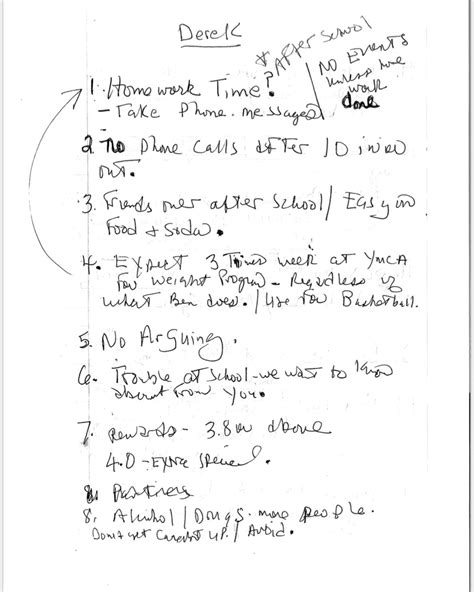 Derek
* After School
NO Events
unless home
work
done
1. Homework Time?
- Take Phone. messages
2. No Phone Calls after 10 in or
out.
3. Friends over after School / Easy on
Food & Soda.
4. Expect 3 Times week at YMCA
for weight Program - Regardless of
what Ben does. / Use for Basketball.
5. No Arguing.
6. Trouble at School - we want to know
about from you.
7. Rewards - 3.8 or above
4.0 - Extra Special.
8. Partners
8. Alcohol / Drugs. more people.
Don't get Caught UP. / Avoid.